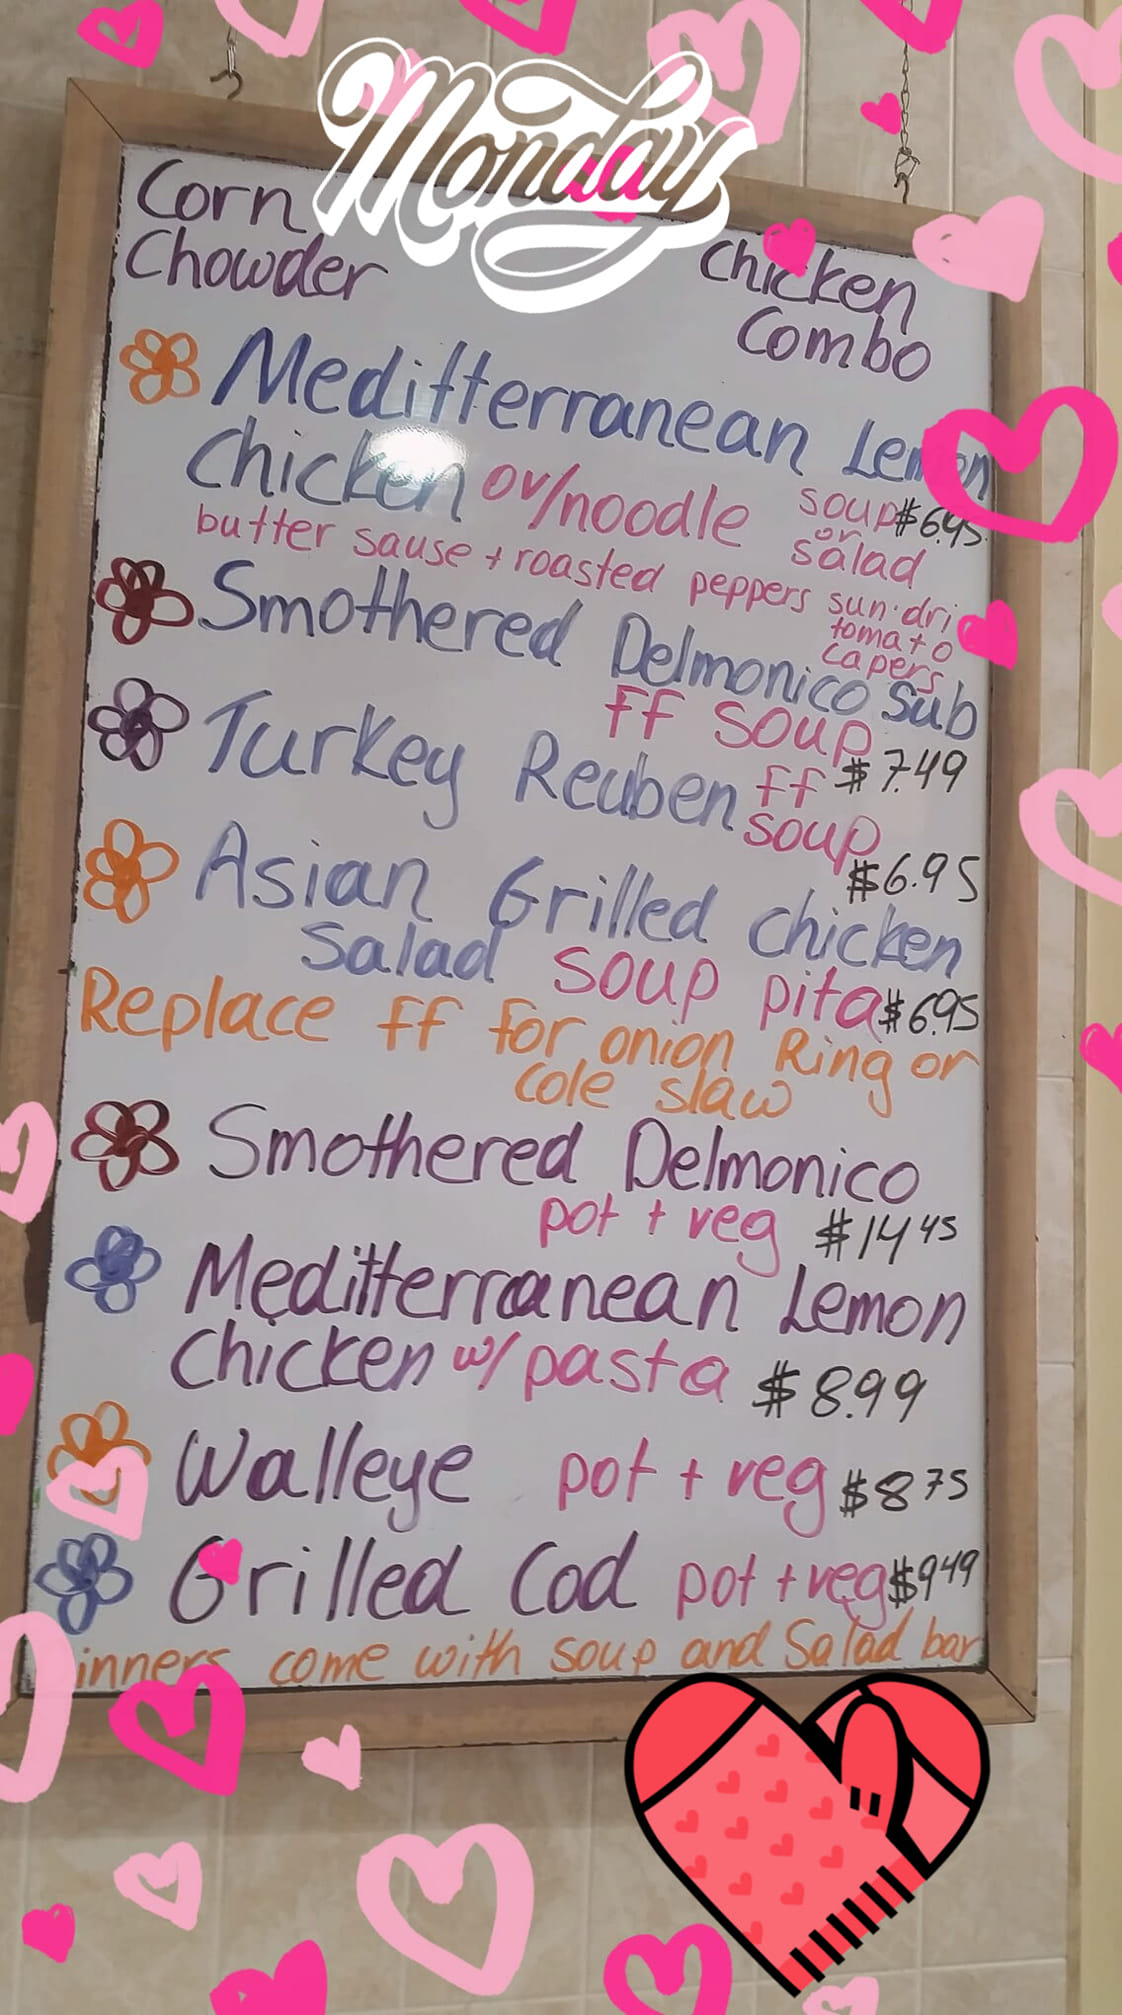 Monday
Corn
Chowder
Chicken
Combo
Meditterranean Lemon
Chicken ov/noodle soup $6.95
or
salad
butter sause + roasted peppers sun-dri
tomato
capers
Smothered Delmonico Sub
FF soup
$7.49
Turkey Reuben FF
soup
$6.95
Asian Grilled Chicken
Salad soup pita $6.95
Replace FF for onion Ring or
cole slaw
Smothered Delmonico
pot + veg $14.45
Meditterranean Lemon
Chicken w/ pasta $8.99
Walleye pot + veg $8.75
Grilled Cod pot + veg $9.49
inners come with soup and Salad bar